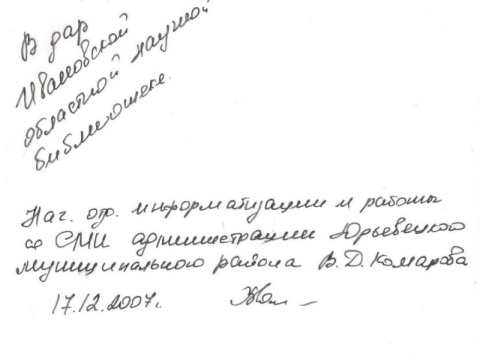 В дар
Ивановской
областной научной
библиотеке.
Нач. отд. информатизации и работы
со СМИ администрации Юрьевецкого
муниципального района В.Д. Комарова
17.12.2007г.